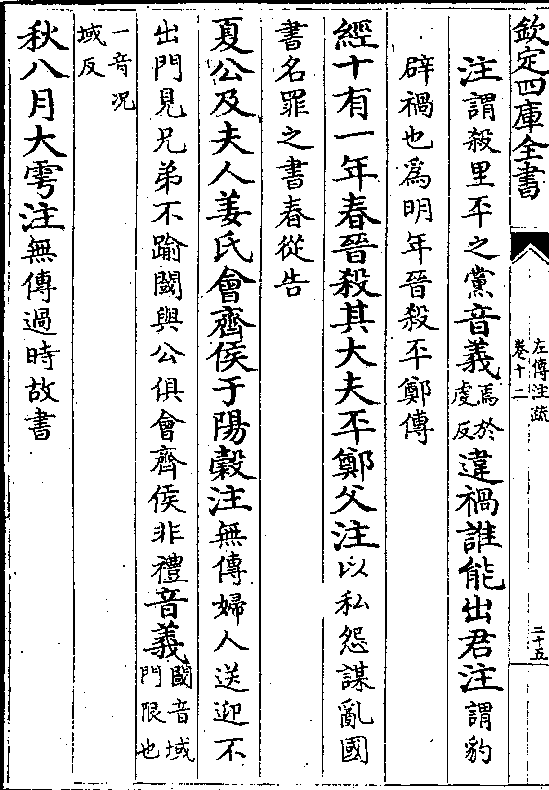 欽定四庫全書
左傳注疏
卷十二
二十五
注謂殺里㔻之黨音義焉於虔反違禍誰能出君注謂豹
辟禍也為明年晉殺㔻鄭傳
經十有一年春晉殺其大夫㔻鄭父注以私怨謀亂國
書名罪之書春從告
夏公及夫人姜氏會齊侯于陽穀注無傳婦人送迎不
出門見兄弟不踰閾與公俱會齊侯非禮音義閾音域門限也
一音況域反
秋八月大雩注無傳過時故書